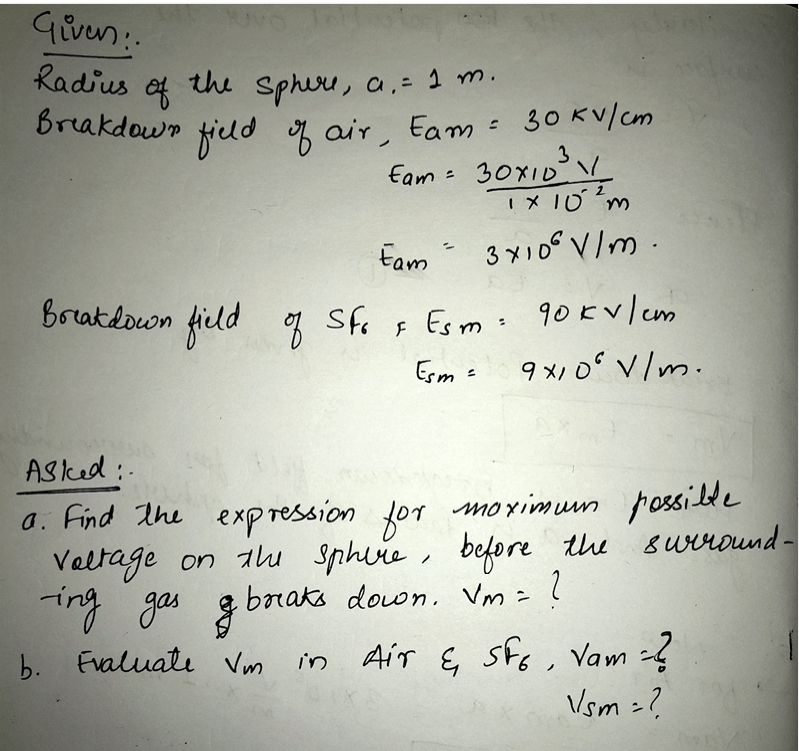 Given:.
Radius of the sphere, a.= 1 m.
Breakdown field of air, Eam = 30 KV/cm
Eam = 30×10³ V
1 × 10⁻² m
Eam = 3×10⁶ V/m.
Breakdown field of SF₆ , Esm = 90 KV/cm
Esm = 9×10⁶ V/m.
Asked:.
a. Find the expression for maximum possible
Voltage on the sphere, before the surround-
-ing gas breaks down. Vm = ?
b. Evaluate Vm in Air & SF₆, Vam =?
Vsm =?